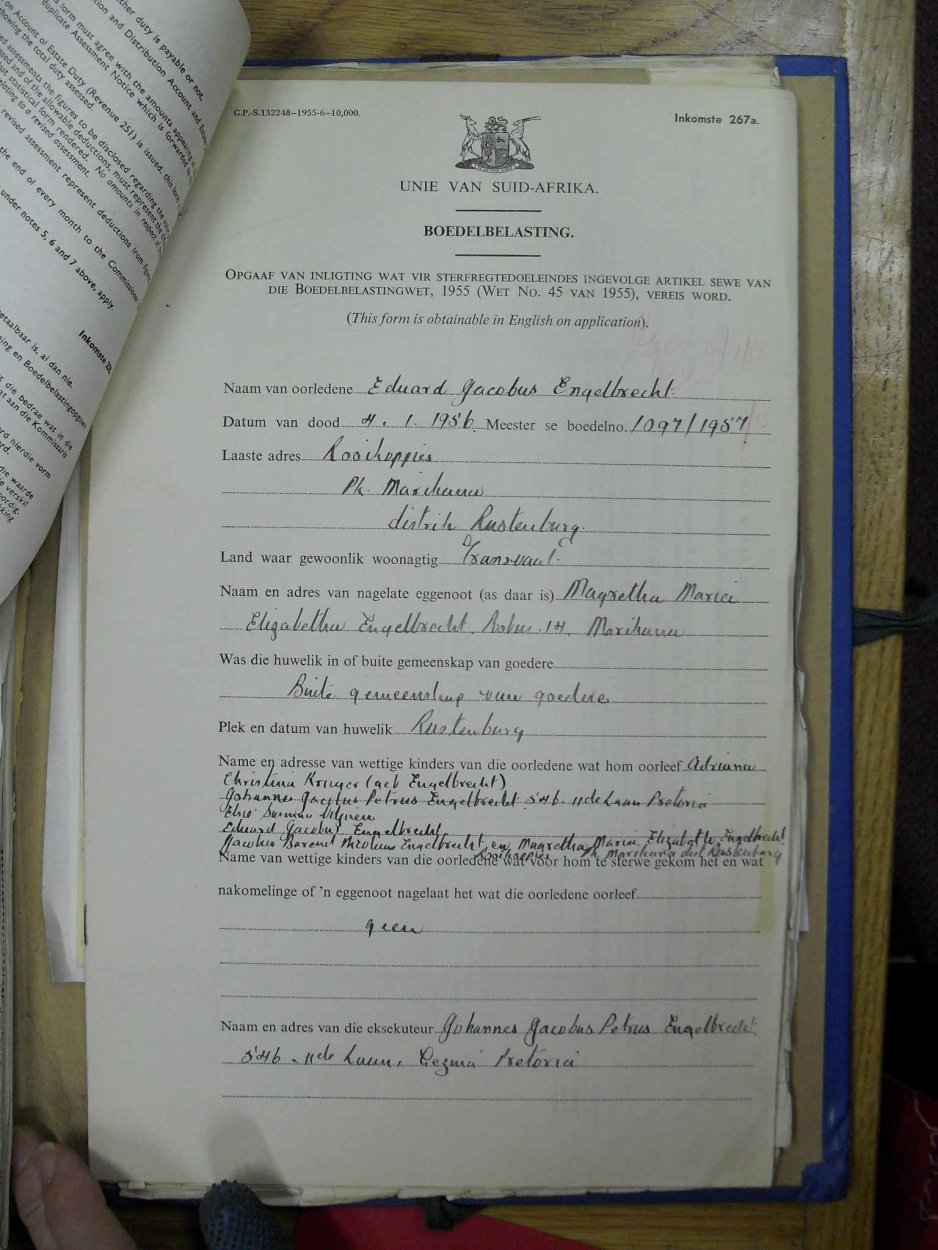 ther duty is payable or not.
form must agree with the amounts appearing
tion and Distribution Account and Estate
duplicate Assessment Notice which is forwarded
on Account of Estate Duty (Revenue 251) is issued, this
howing the total duty assessed.
ed assessments the figures to be disclosed regarding the
and of the allowable deductions, must represent the
statistical form rendered. No amounts in respect of
elating to a revised assessment.
revised assessment represent deductions from
the end of every month to the Commissioner
under notes 5, 6 and 7 above, apply.
Inkomste
betaalbaar is, al dan nie.
ing en Boedelbelastingopgaw
die bedrae wat in die
aan die Kommissaris
hierdie vorm
die waarde
G.P.-S.132248—1955-6—10,000.
Inkomste 267a.
UNIE VAN SUID-AFRIKA.
BOEDELBELASTING.
OPGAAF VAN INLIGTING WAT VIR STERFREGTEDOELEINDES INGEVOLGE ARTIKEL SEWE VAN
DIE BOEDELBELASTINGWET, 1955 (WET NO. 45 VAN 1955), VEREIS WORD.
(This form is obtainable in English on application).
Naam van oorledene Eduard Jacobus Engelbrecht.
Datum van dood 4. 1. 1956 Meester se boedelno. 1097/1957
Laaste adres Rooikoppies
Pk. Marikana
distrik Rustenburg.
Land waar gewoonlik woonagtig Transvaal.
Naam en adres van nagelate eggenoot (as daar is) Magretha Maria
Elizabetha Engelbrecht. Posbus. 14, Marikana
Was die huwelik in of buite gemeenskap van goedere
Buite gemeenskap van goedere
Plek en datum van huwelik Rustenburg
Name en adresse van wettige kinders van die oorledene wat hom oorleef Adriana
Christina Kruger (geb Engelbrecht)
Johannes Jacobus Petrus Engelbrecht 546 - 11de Laan Pretoria
Elsie Viljoen
Eduard Jacobus Engelbrecht
Jacobus Barend Nicolaas Engelbrecht en Magretha Maria Elizabeth Engelbrecht
Rooikoppies Pk. Marikana dist Rustenburg
Name van wettige kinders van die oorledene wat voor hom te sterwe gekom het en wat
nakomelinge of 'n eggenoot nagelaat het wat die oorledene oorleef
geen
Naam en adres van die eksekuteur Johannes Jacobus Petrus Engelbrecht
546 - 11de Laan, Gezina Pretoria